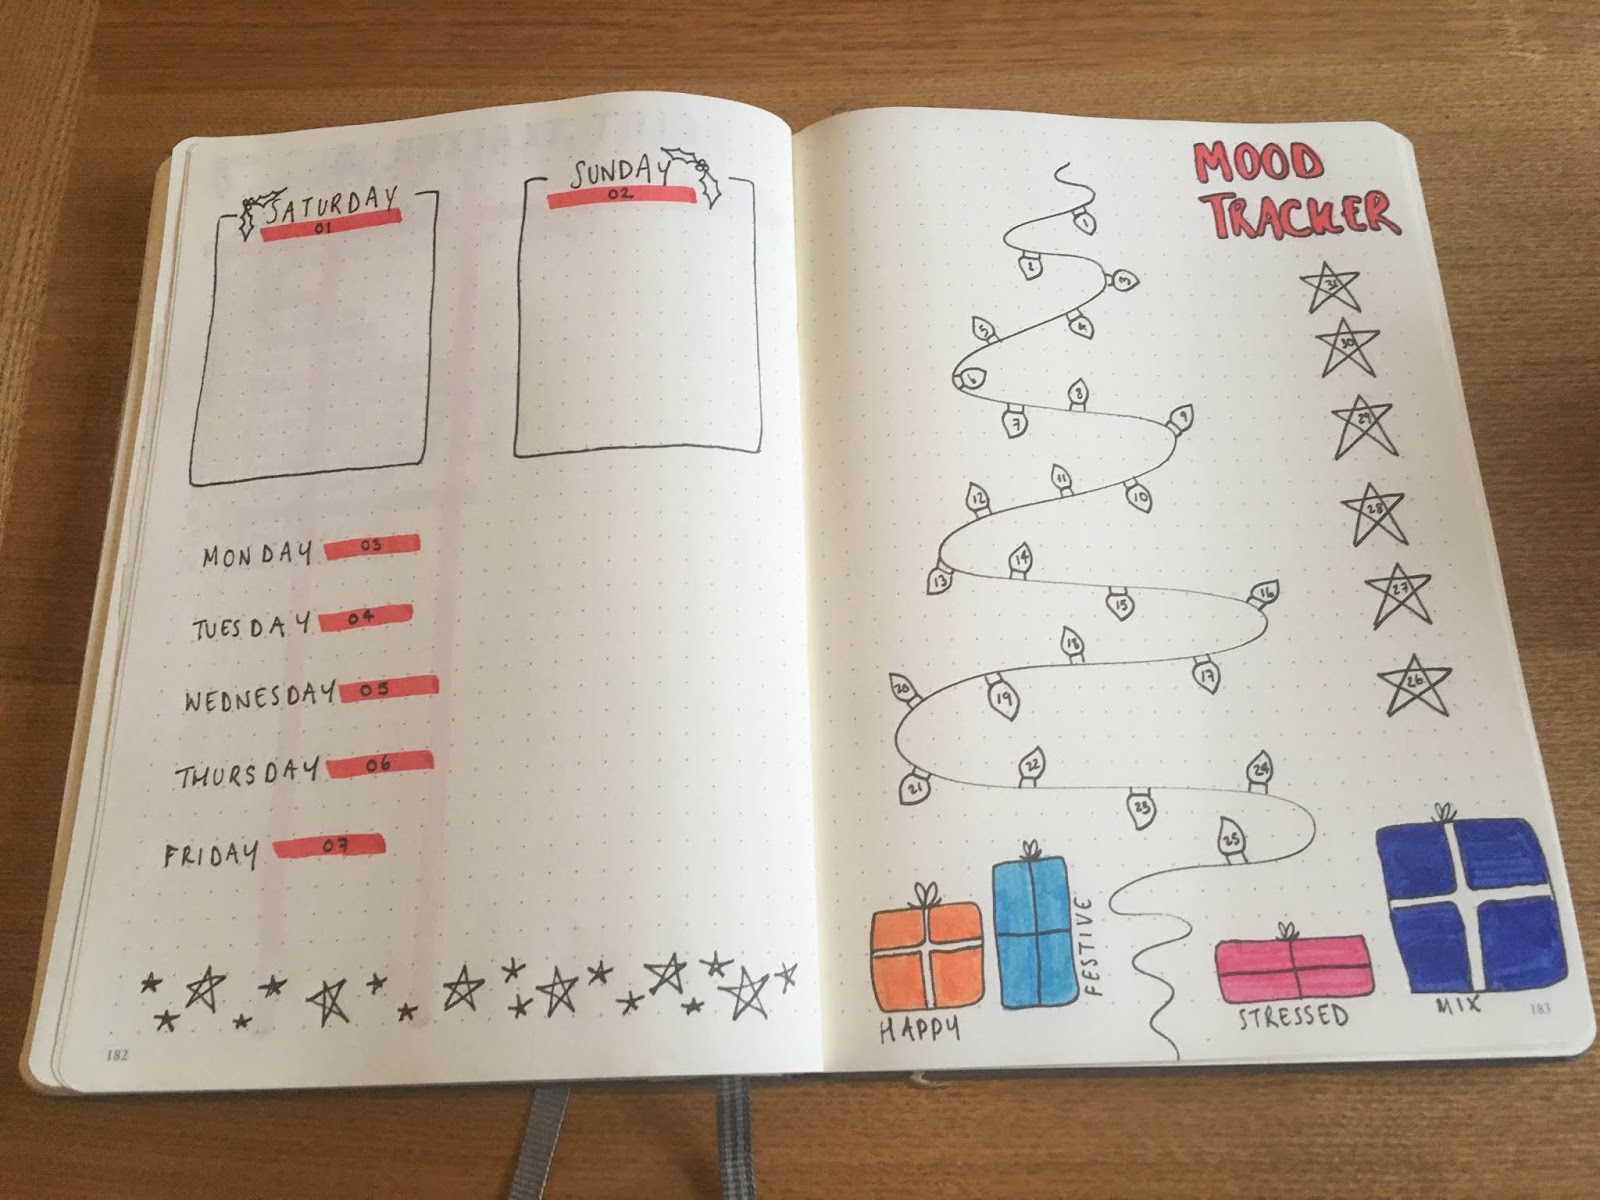 SATURDAY
01
SUNDAY
02
MONDAY 03
TUESDAY 04
WEDNESDAY 05
THURSDAY 06
FRIDAY 07
182
MOOD
TRACKER
1
2
3
4
5
6
7
8
9
10
11
12
13
14
15
16
17
18
19
20
21
22
23
24
25
31
30
29
28
27
26
HAPPY
FESTIVE
STRESSED
MIX
183